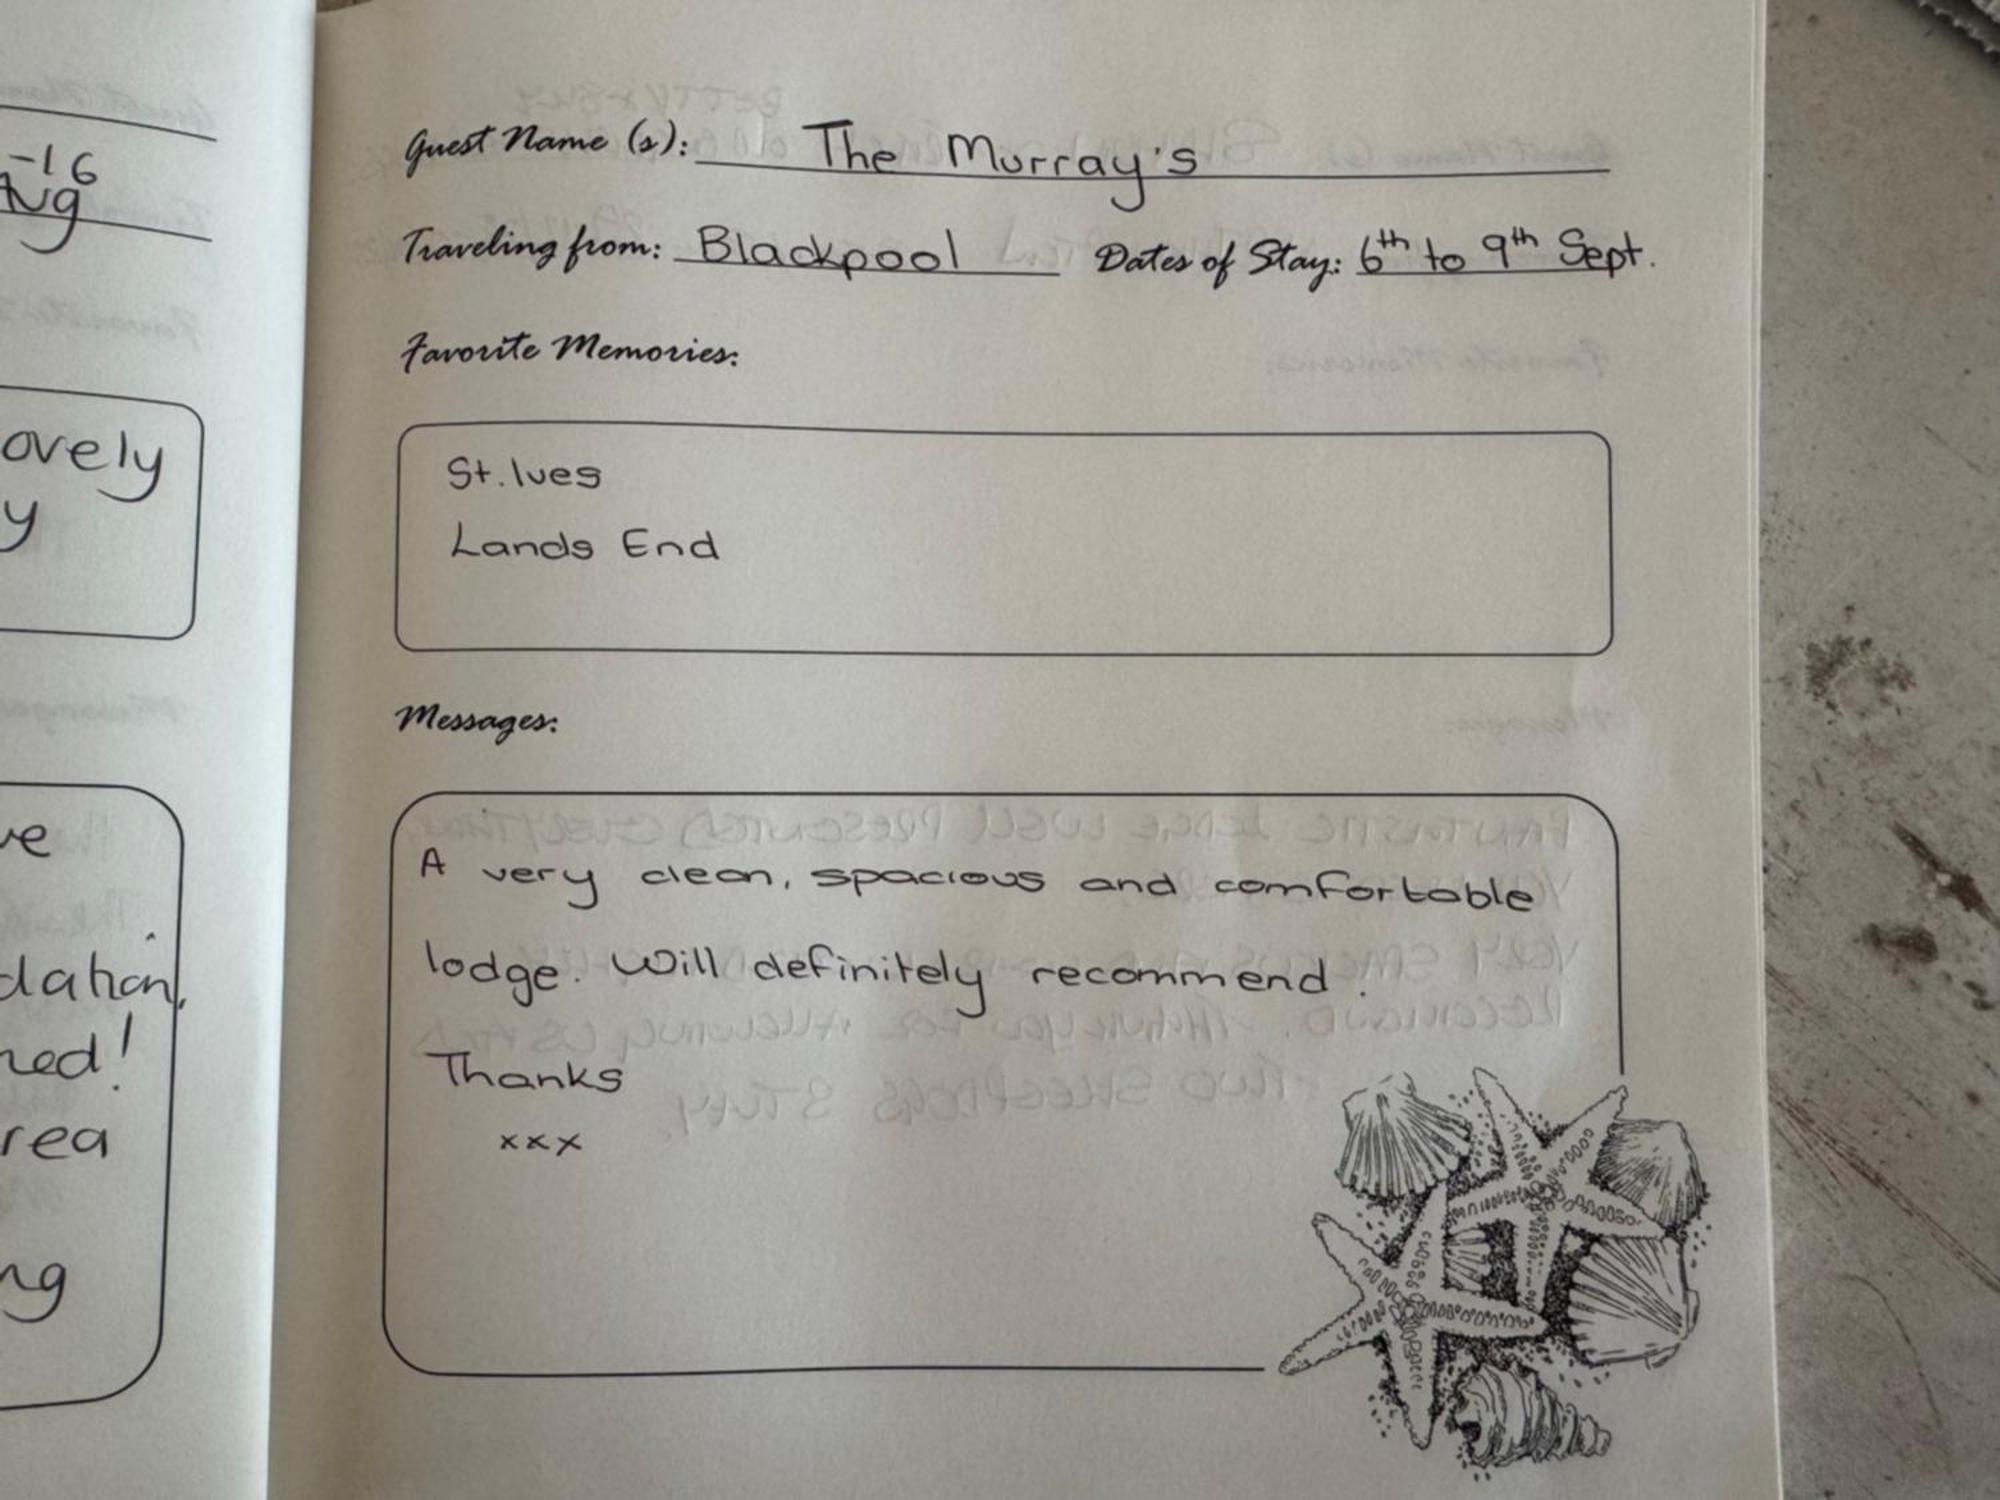 -16
Aug
ovely
y
ve
dation,
ned!
rea
ng
Guest Name (s): The Murray's
Traveling from: Blackpool Dates of Stay: 6th to 9th Sept.
Favorite Memories:
St. Ives
Lands End
Messages:
A very clean, spacious and comfortable
lodge. Will definitely recommend.
Thanks
xxx